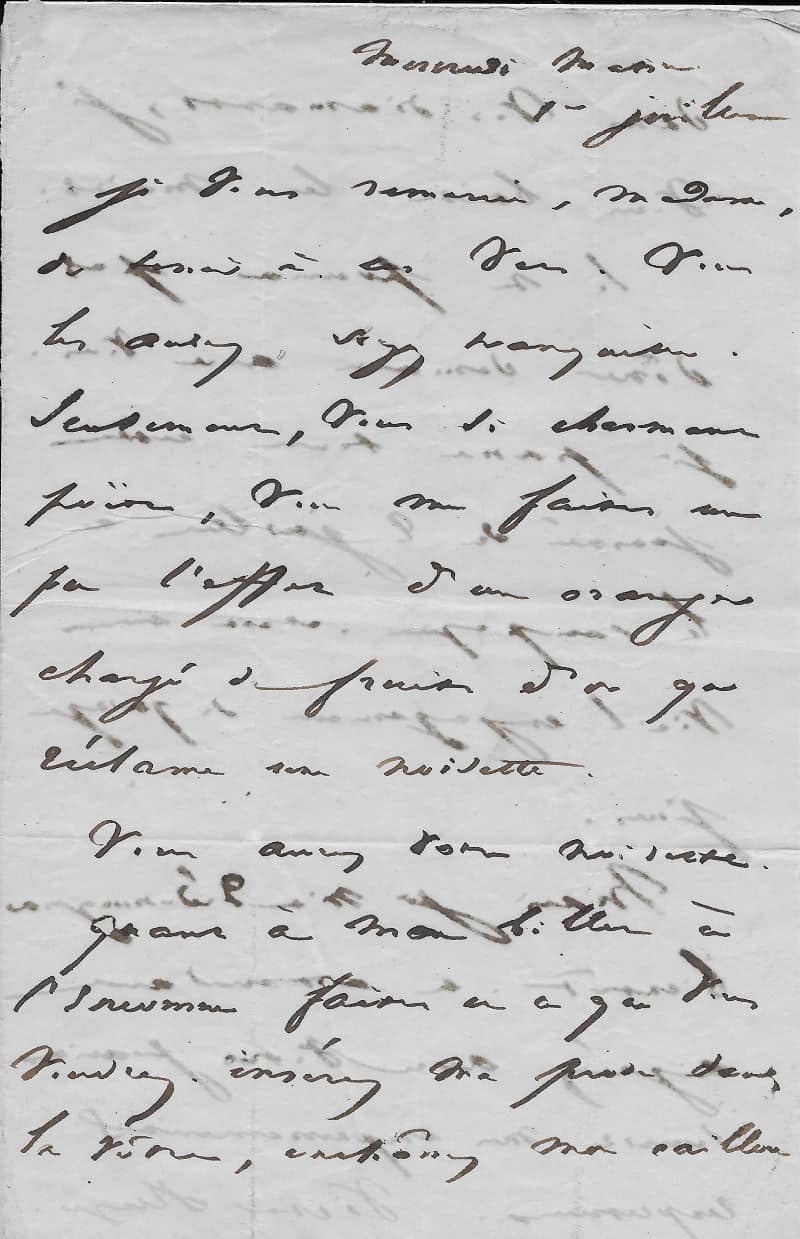 Mercredi matin
1er juillet
Je vous remercie, madame,
de songer à ces vers. Vous
les aurez
Seulement, vous si charmant
poëte, vous me faites un
peu l'effet d'un oranger
chargé de fruits d'or qui
réclame une noisette.
Vous aurez votre noisette.
Quant à mon billet à
l'inconnue faites en ce que vous
voudrez. insérez ma prose dans
la vôtre, enchâssez mon caillou